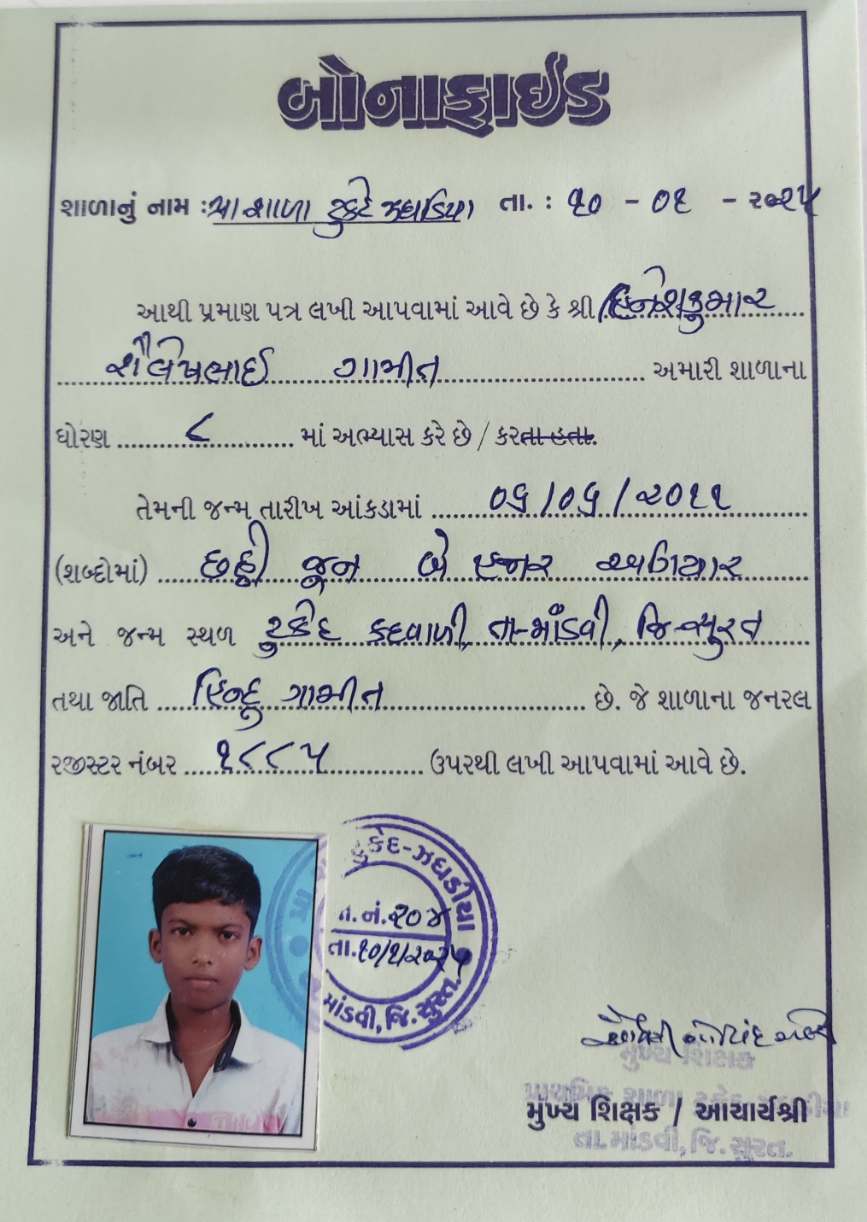 બોનાફાઈડ
શાળાનું નામ : પ્રા શાળા ટુકેદ ઝઘડિયા તા. : ૧૦ - ૦૧ - ૨૦૨૫
આથી પ્રમાણ પત્ર લખી આપવામાં આવે છે કે શ્રી હિનેશકુમાર
શૈલેષભાઈ ગામીત અમારી શાળાના
ધોરણ ૮ માં અભ્યાસ કરે છે / કરતા હતા.
તેમની જન્મ તારીખ આંકડામાં ૦૬/૦૬/૨૦૧૧
(શબ્દોમાં) છઠ્ઠી જૂન બે હજાર અગિયાર
અને જન્મ સ્થળ ટુકેદ કદવાળી, તા-માંડવી, જિ-સુરત
તથા જાતિ હિન્દુ ગામીત છે. જે શાળાના જનરલ
રજીસ્ટર નંબર ૧૮૮૫ ઉપરથી લખી આપવામાં આવે છે.
ટુકેદ-ઝઘડીયા
નં.૨૦૪
તા.૧૦/૧/૨૦૨૫
માંડવી, જિ. સુરત.
મુખ્ય શિક્ષક
પ્રાથમિક શાળા ટુકેદ
મુખ્ય શિક્ષક / આચાર્યશ્રી
તા.માંડવી, જિ. સુરત.